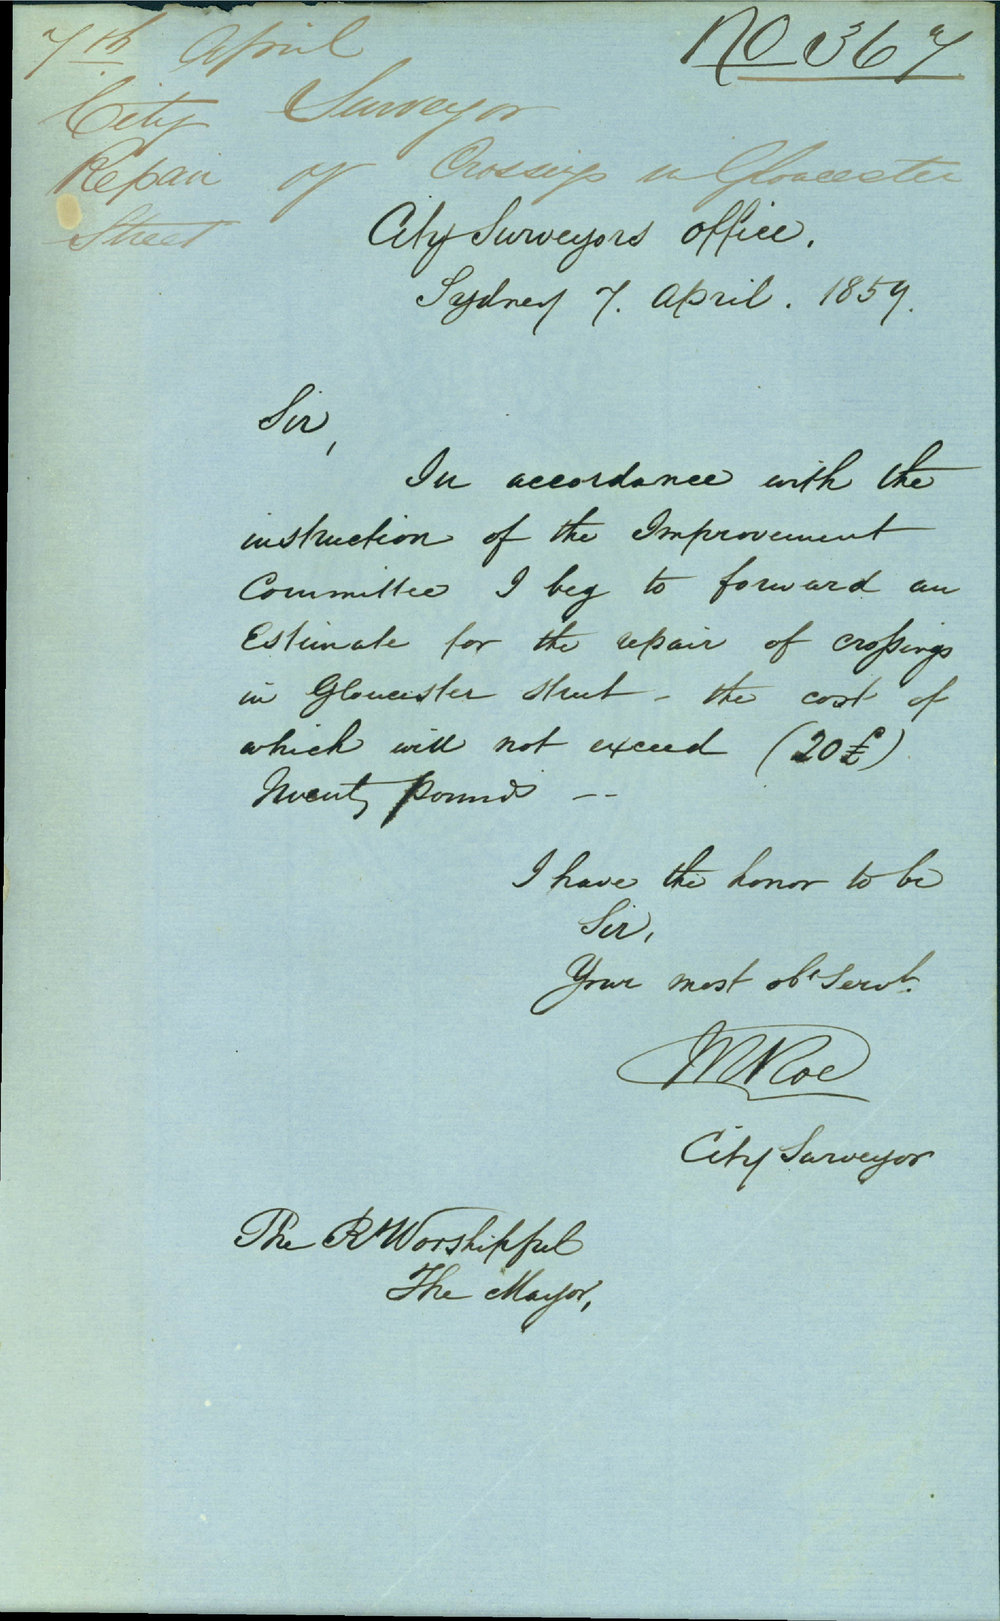 No 367
7th April
City Surveyor
Repair of Crossings in Gloucester
Street
City Surveyors Office.
Sydney 7. April. 1859.
Sir,
In accordance with the
instruction of the Improvement
Committee I beg to forward an
Estimate for the repair of croſsings
in Gloucester Street - the cost of
which will not exceed (20£)
Twenty pounds --
I have the honor to be
Sir,
Your most obt Servt.
W Roe
City Surveyor
The Rt Worshipful
The Mayor,